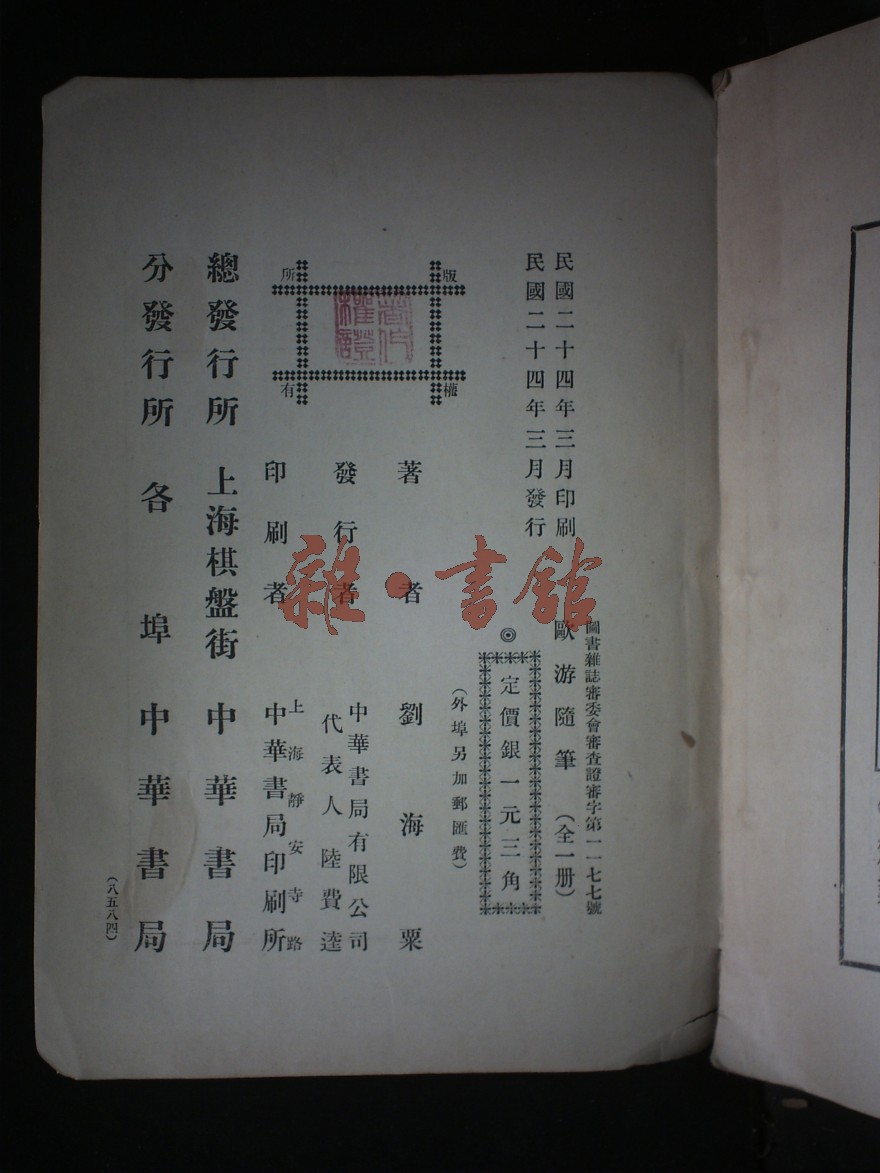 圖書雜誌審委會審查證審字第一一七七號
民國二十四年三月印刷
民國二十四年三月發行
歐游隨筆（全一册）
◎定價銀一元三角
（外埠另加郵匯費）
版權所有
著作權證
著者 劉海粟
發行者 中華書局有限公司
代表人陸費逵
印刷者 上海靜安寺路
中華書局印刷所
總發行所 上海棋盤街 中華書局
分發行所 各埠 中華書局
（八五八四）
雜·書館